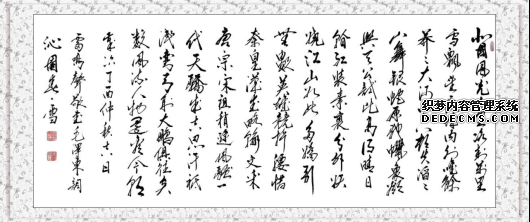 北国风光千里冰封万里
雪飘望长城内外惟馀
莽莽大河上下顿失滔滔
山舞银蛇原驰蜡象欲
与天公试比高须晴日
看红装素裹分外妖
娆江山如此多娇引
无数英雄竞折腰惜
秦皇汉武略输文采
唐宗宋祖稍逊风骚一
代天骄成吉思汗只
识弯弓射大雕俱往矣
数风流人物还看今朝
丁酉仲秋十六日
敬书毛泽东词
沁园春雪
织梦内容管理系统
DEDECMS.COM